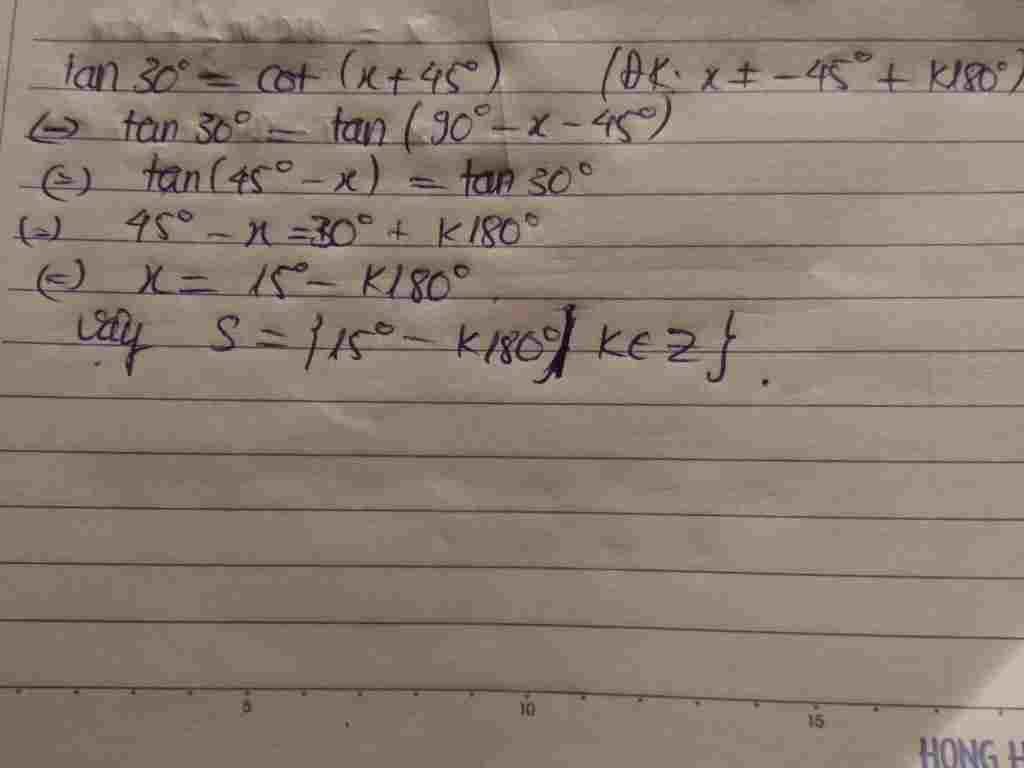 tan 30° = cot (x + 45°) (ĐK: x ≠ -45° + K180°)
(=) tan 30° = tan (90° - x - 45°)
(=) tan(45° - x) = tan 30°
(=) 45° - x = 30° + K180°
(=) x = 15° - K180°.
Vậy S = {15° - K180° | K ∈ Z}.
5 10 15
HONG H